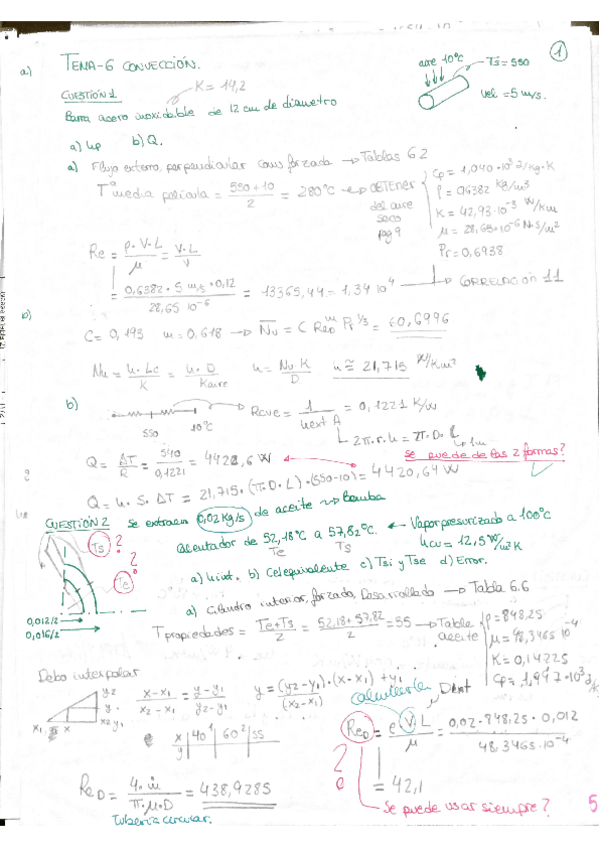 1
a)
TEMA-6 CONVECCIÓN.
aire 10°C
Ts=550
vel=5 m/s.
CUESTIÓN 1
K=14,2
Barra acero inoxidable de 12 cm de diametro
a) hp b) Q.
a) Flujo externo, perpendicular conv forzada → Tablas 6.2
T media película = (550+10)/2 = 280°C → OBTENER del aire seco pag 9
ρ = 0,6382 kg/m3
K = 42,93·10^-3 W/Km
μ = 28,65·10^-6 N·S/m2
Pr = 0,6938
Re = ρ·V·L/μ = V·L/ν
= 0,6382·5 m/s·0,12 / 28,65 10^-6 = 13365,44 = 1,34 10^4 → CORRELACIÓN 11
b)
C = 0,193 m = 0,618 → Nu = C Re_D^m Pr^1/3 = 60,6996
Nu = h·Lc/K = h·D/Kaire h = Nu·K/D h ≅ 21,715 W/Km2
b)
550 10°C
Rcve = 1/(hext A) = 0,1221 K/W
2π·r·L = 2π·D·L
1m
Q = ΔT/R = 540/0,1221 = 4422,6 W
se puede de las 2 formas?
Q = h·S·ΔT = 21,715·(π·D·L)·(550-10) = 4420,64 W
CUESTIÓN 2 Se extraen 0,02 Kg/s de aceite → bomba
Calentador de 52,18°C a 57,82°C. ← Vapor presurizado a 100°C
Te Ts
hcv = 12,5 W/m2K
Ts ?
Te ?
a) hint. b) Cel equivalente c) Tsi y Tse d) Error.
0,012/2
0,016/2
a) Cilindro interior, forzado, Desarrollado → Tabla 6.6
T propiedades = (Te+Ts)/2 = (52,18+57,82)/2 = 55 → Table aceite
ρ = 848,25
μ = 48,3465 10^-4
K = 0,14225
Cp = 1,997·10^3
Debo interpolar
y2
y
x1 x x2 y1
(x-x1)/(x2-x1) = (y-y1)/(y2-y1)
y = (y2-y1)·(x-x1)/(x2-x1) + y1
x | 40 | 60 | 55
y
calcularla Dint
Re_D = ρ V L/μ = 0,02·848,25·0,012 / 48,3465·10^-4
?
= 42,1
Re_D = 4·ṁ/(π·μ·D) = 438,9285
Tubería circular.
Se puede usar siempre?
5